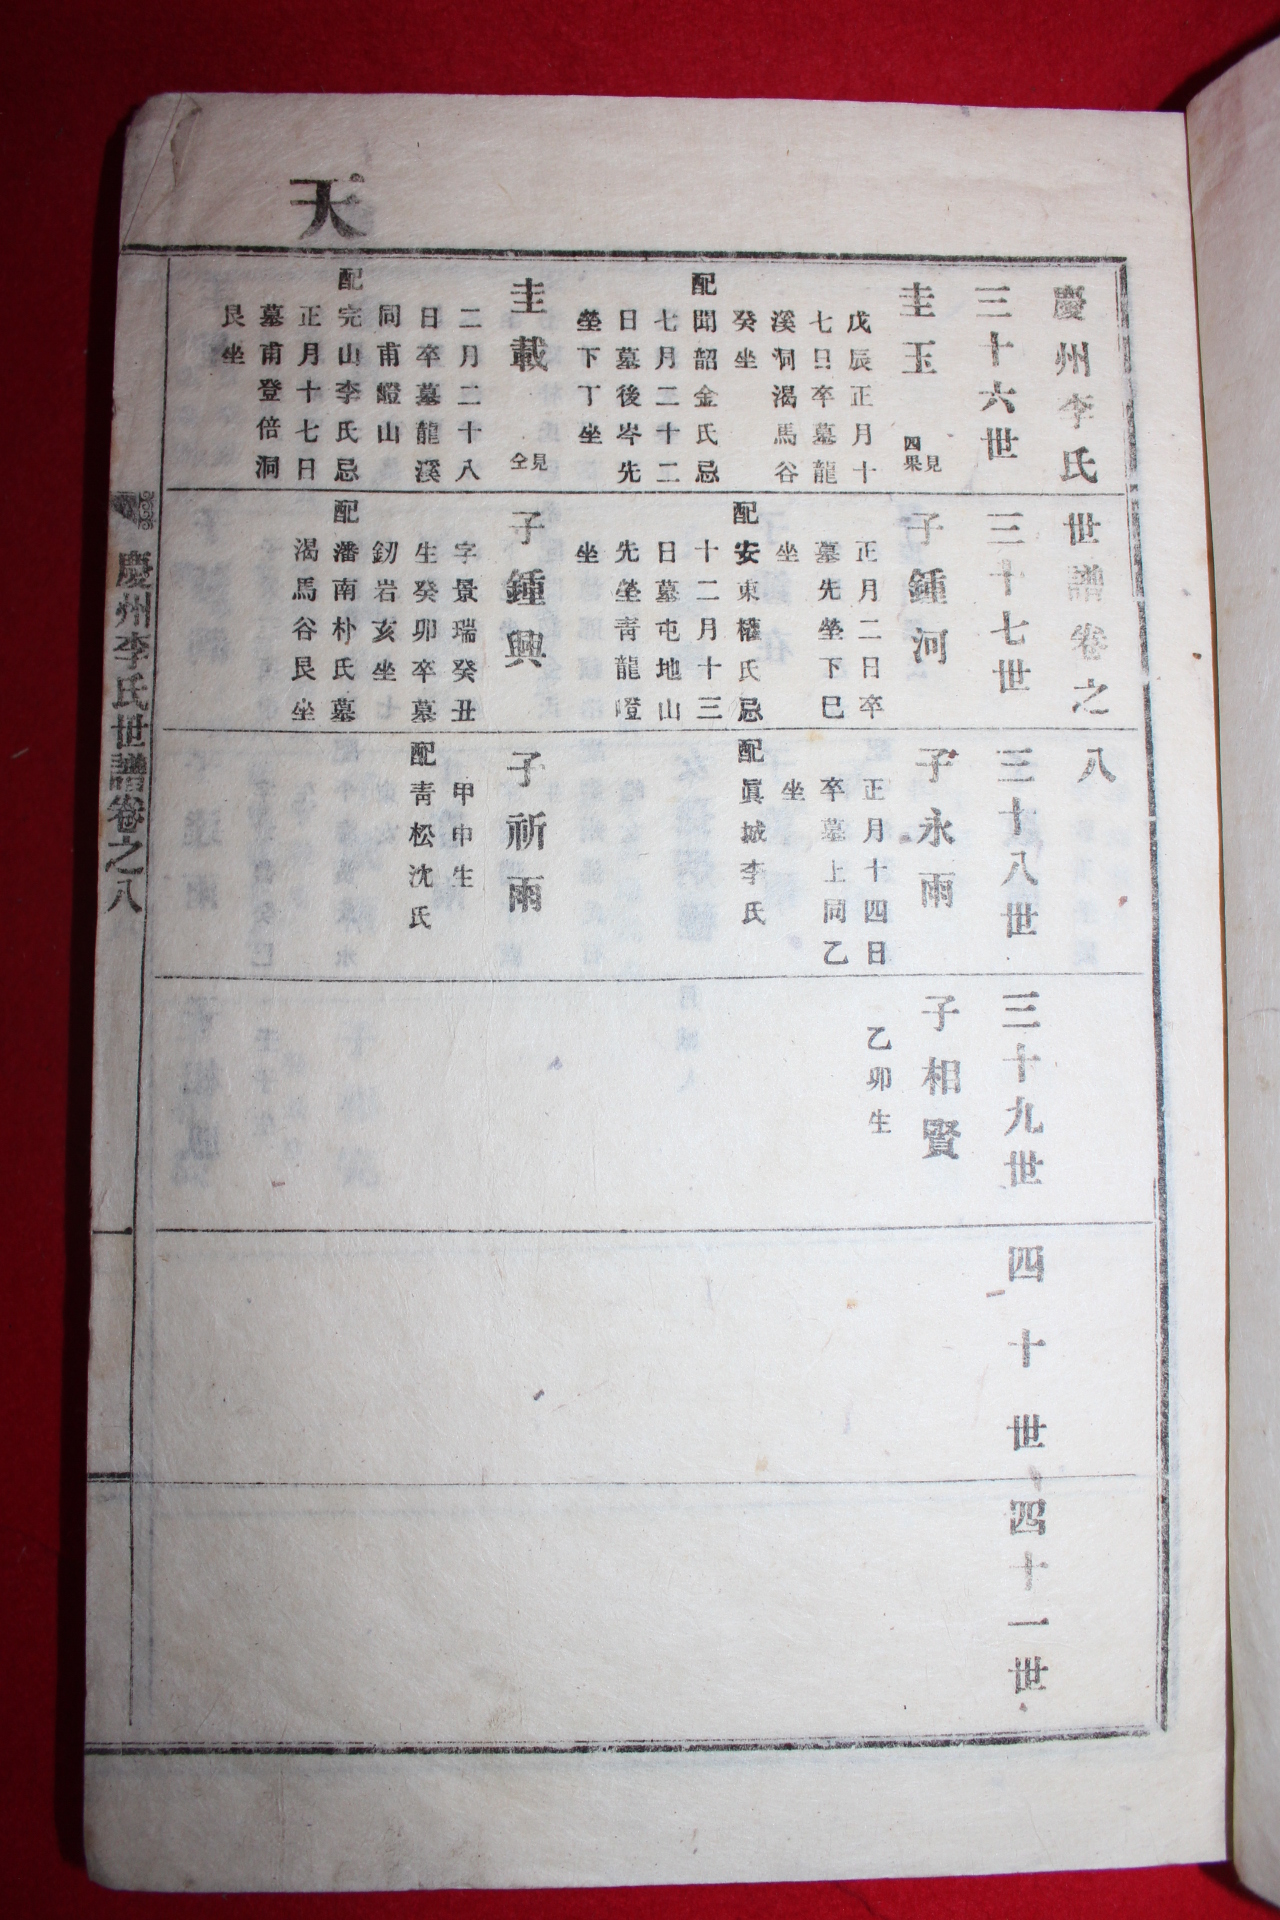 天
慶州李氏世譜卷之八
三十六世
三十七世
三十八世
三十九世
四十世
四十一世
圭玉
見四果
戊辰正月十
七日卒墓龍
溪洞渴馬谷
癸坐
配聞韶金氏忌
七月三十二
日墓後岑先
塋下丁坐
子鍾河
正月二日卒
墓先塋下巳
坐
配安東權氏忌
十二月十三
日墓屯地山
先塋靑龍嶝
坐
子永雨
正月十四日
卒墓上同乙
坐
配眞城李氏
子相賢
乙卯生
圭載
見仝
二月二十八
日卒墓龍溪
同甫嶝山
配完山李氏忌
正月十七日
墓甫登倍洞
艮坐
子鍾興
字景瑞癸丑
生癸卯卒墓
釰岩亥坐
配潘南朴氏墓
渴馬谷艮坐
子祈雨
甲申生
配靑松沈氏
慶州李氏世譜卷之八
一